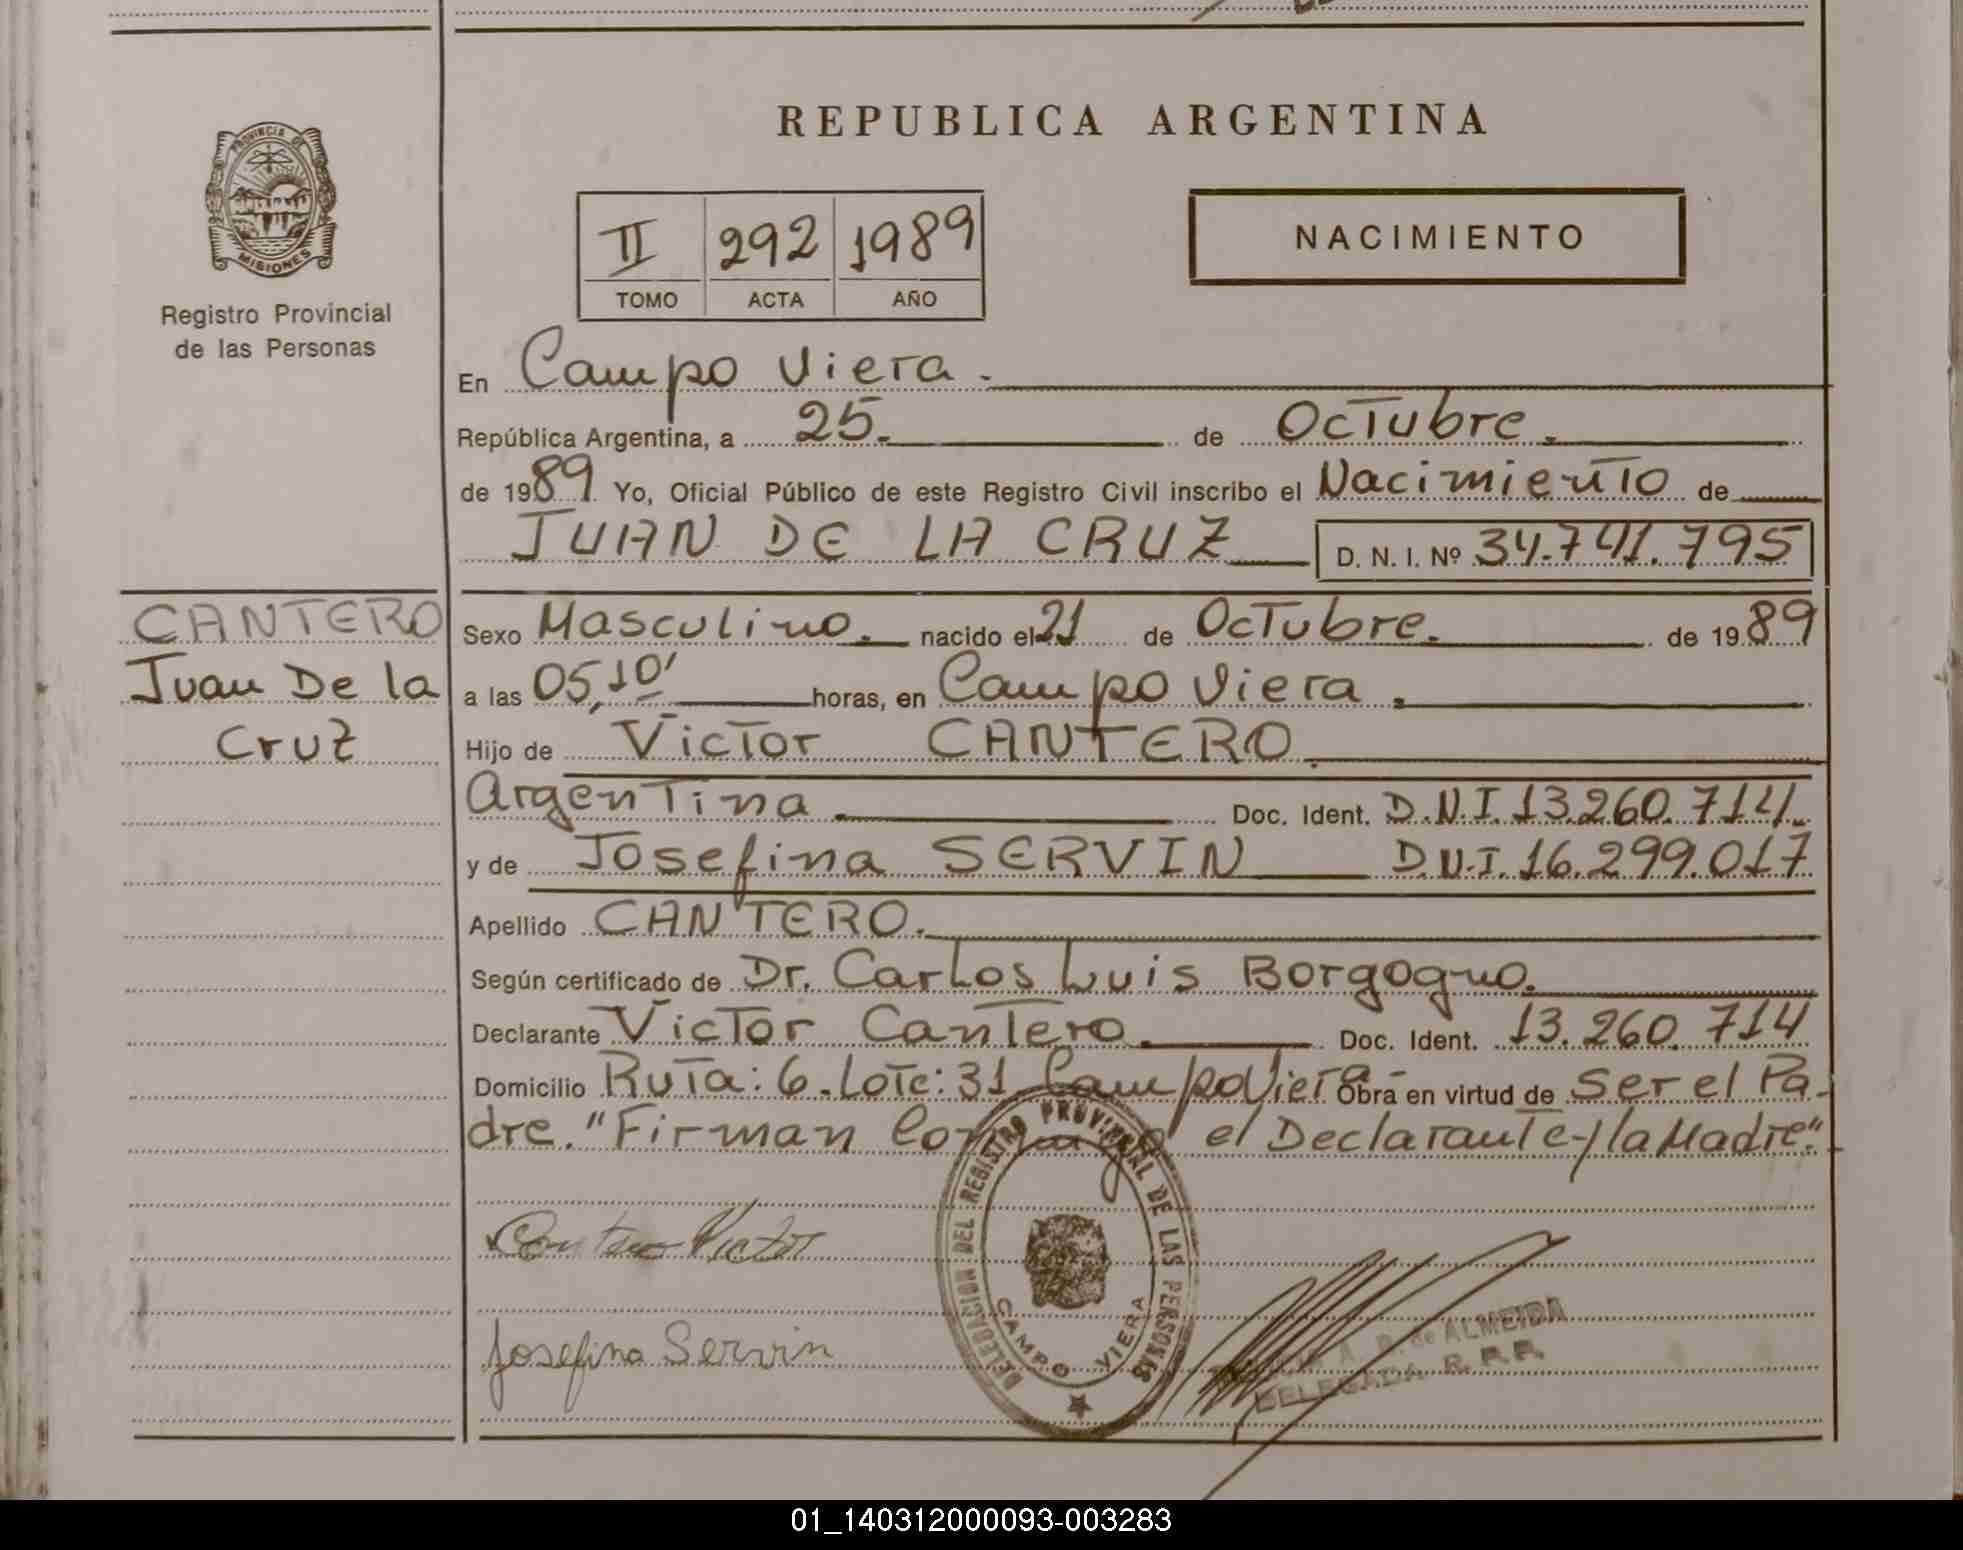 REPUBLICA ARGENTINA
PROVINCIA DE
MISIONES
Registro Provincial
de las Personas
II 292 1989
TOMO ACTA AÑO
NACIMIENTO
En Campo Viera.
República Argentina, a 25. de Octubre.
de 1989. Yo, Oficial Público de este Registro Civil inscribo el Nacimiento de
JUAN DE LA CRUZ D. N. I. Nº 34.741.795
CANTERO
Juan De la
Cruz
Sexo Masculino. nacido el 21 de Octubre. de 1989
a las 05,10' horas, en Campo Viera.
Hijo de Victor CANTERO.
Argentina. Doc. Ident. D.N.I. 13.260.714.
y de Josefina SERVIN D.N.I. 16.299.017
Apellido CANTERO.
Según certificado de Dr. Carlos Luis Borgogno.
Declarante Victor Cantero. Doc. Ident. 13.260.714
Domicilio Ruta: 6. Lote: 31 Campo Viera- Obra en virtud de Ser el Pa-
dre. "Firman Conmigo el Declarante y la Madre".-
Cantero Victor
Josefina Servin
DELEGACION DEL REGISTRO PROVINCIAL DE LAS PERSONAS
CAMPO VIERA
A. R. de ALMEIDA
DELEGADA R. P. P.
01_140312000093-003283